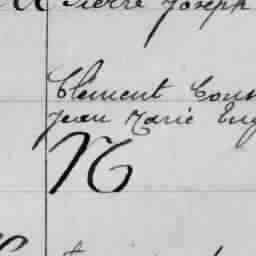 Pierre Joseph
Clément Cons
Jean Marie Eug
N